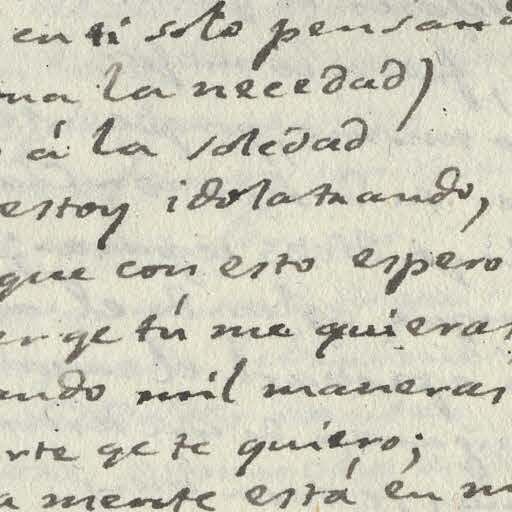 en ti solo pensand
na la necedad)
á la soledad
estoy idolatrando,
que con esto espero
er qe tú me quieras
ando mil maneras
rte qe te quiero;
a mente está en m